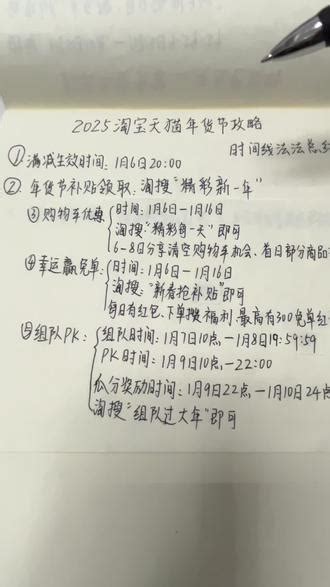 2025淘宝天猫年货节攻略
时间线法法总结
①满减生效时间:1月6日20:00
②年货节补贴领取:淘搜"精彩新一年"
③购物车优惠 时间:1月6日—1月16日
淘搜"精彩每一天"即可
6-8日分享清空购物车机会、首日部分商品
④幸运赢免单: 时间:1月6日—1月16日
淘搜:"新春抢补贴"即可
每日有红包、下单搜福利、最高有300免单红
⑤组队PK: 组队时间:1月7日10点—1月8日19:59:59
PK时间:1月9日10点—22:00
瓜分奖励时间:1月9日22点—1月10日24点
淘搜"组队过大年"即可